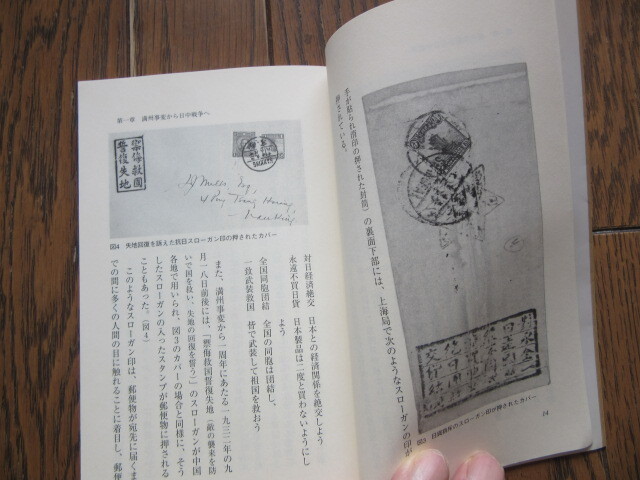 毛が貼られ消印の押された封筒）の裏面下部には、上海局で次のようなスローガンの印が
押されている。
図3 日貨排斥のスローガン印が押されたカバー
14
第一章 満州事変から日中戦争へ
禦侮救國
誓復失地
図4 失地回復を訴えた抗日スローガン印の押されたカバー
対日経済絶交 日本との経済関係を絶交しよう
永遠不買日貨 日本製品は二度と買わないようにし
よう
全国同胞団結 全国の同胞は団結し、
一致武装救国 皆で武装して祖国を救おう
また、満州事変から一周年にあたる一九三二年の九
月一八日前後には、「禦侮救国誓復失地（敵の襲来を防
いで国を救い、失地の回復を誓う）」のスローガンが中国
各地で用いられ、図3のカバーの場合と同様に、そう
したスローガンの入ったスタンプが郵便物に押される
こともあった。（図4）
このようなスローガン印は、郵便物が宛先に届くま
での間に多くの人間の目に触れることに着目し、郵便